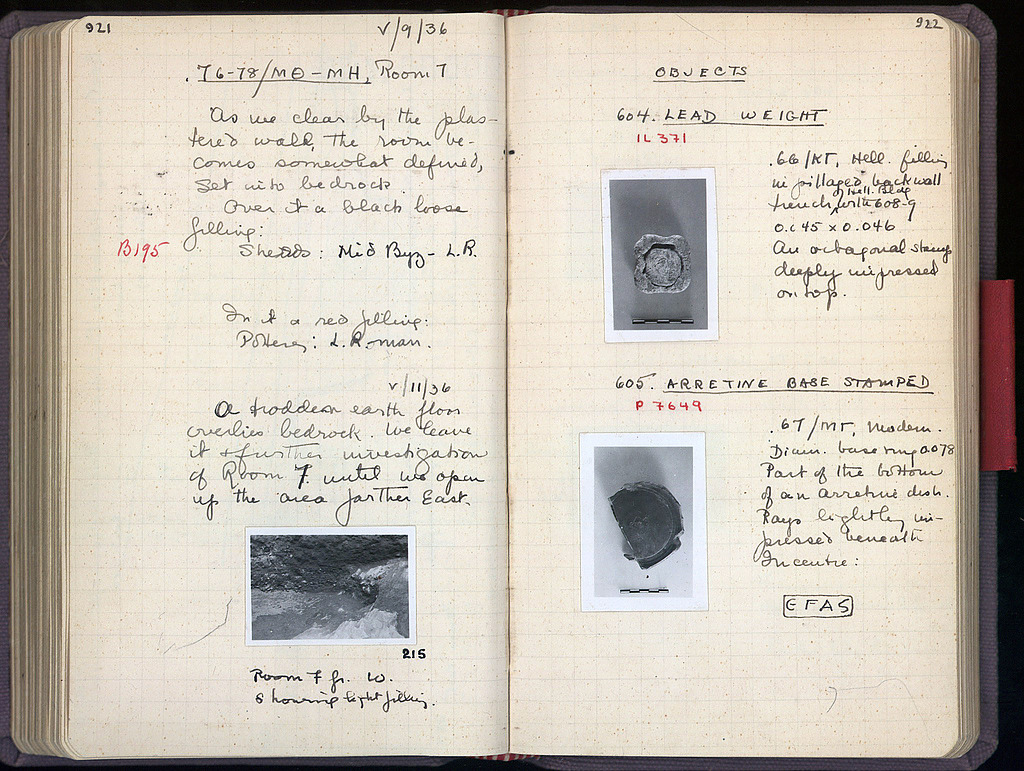 921
V/9/36
76-78/ΜΘ-ΜΗ, Room 7
As we clear by the plas-
tered wall, the room be-
comes somewhat defined,
set into bedrock.
Over it a black loose
filling:
B195
Sherds: Mid Byz - L.R.
In it a red filling:
Pottery: L. Roman.
V/11/36
A trodden earth floor
overlies bedrock. We leave
it & further investigation
of Room 7 until we open
up the area farther East.
215
Room 7 fr. W.
showing light filling.
922
OBJECTS
604. LEAD WEIGHT
IL 371
.66/ΚΓ, Hell. filling
in pillaged back wall
of Hell. Bldg
trench, with 608-9
0.045 x 0.046
An octagonal stamp
deeply impressed
on top.
605. ARRETINE BASE STAMPED
P 7649
.67/ΜΓ, Modern.
Diam. base ring 0.078
Part of the bottom
of an Arretine dish.
Rays lightly im-
pressed beneath
In centre:
CFAS